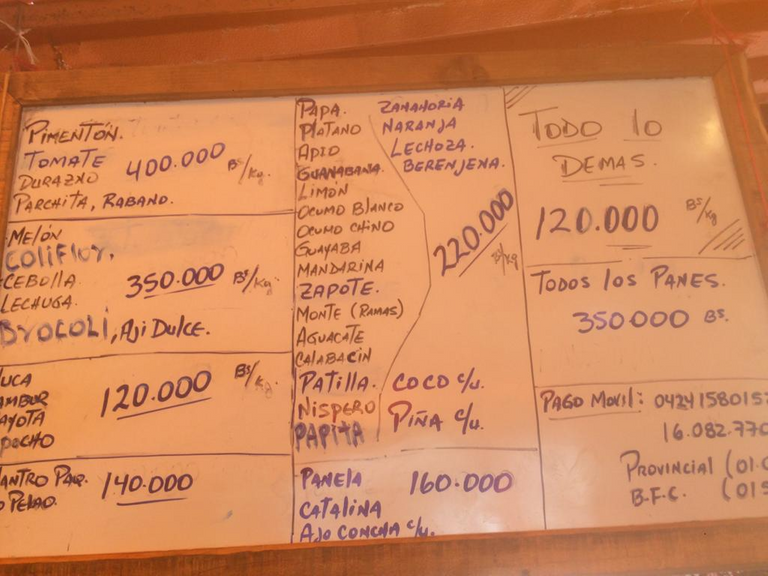 PIMENTÓN.
TOMATE
DURAZNO
PARCHITA, RABANO.
400.000 Bs/Kg.
MELÓN
COLIFLOR,
CEBOLLA
LECHUGA.
BROCOLI, AJI DULCE.
350.000 Bs/Kg.
UCA
AMBUR
AYOTA
POCHO
120.000 Bs/Kg.
ANTRO PAQ.
PELAO.
140.000
PAPA. ZANAHORIA
PLATANO NARANJA
APIO LECHOZA.
GUANABANA. BERENJENA.
LIMÓN
OCUMO BLANCO
OCUMO CHINO
GUAYABA
MANDARINA
ZAPOTE.
MONTE (RAMAS)
AGUACATE
CALABACIN
PATILLA. COCO c/u.
NISPERO PIÑA c/u.
PAPITA
220.000 Bs/Kg
PANELA 160.000
CATALINA
AJO CONCHA c/u.
TODO lo
DEMAS.
120.000 Bs/Kg
TODOS los PANES.
350.000 Bs.
PAGO MOVIL: 0424158015
16.082.770
PROVINCIAL (01
B.F.C. (01